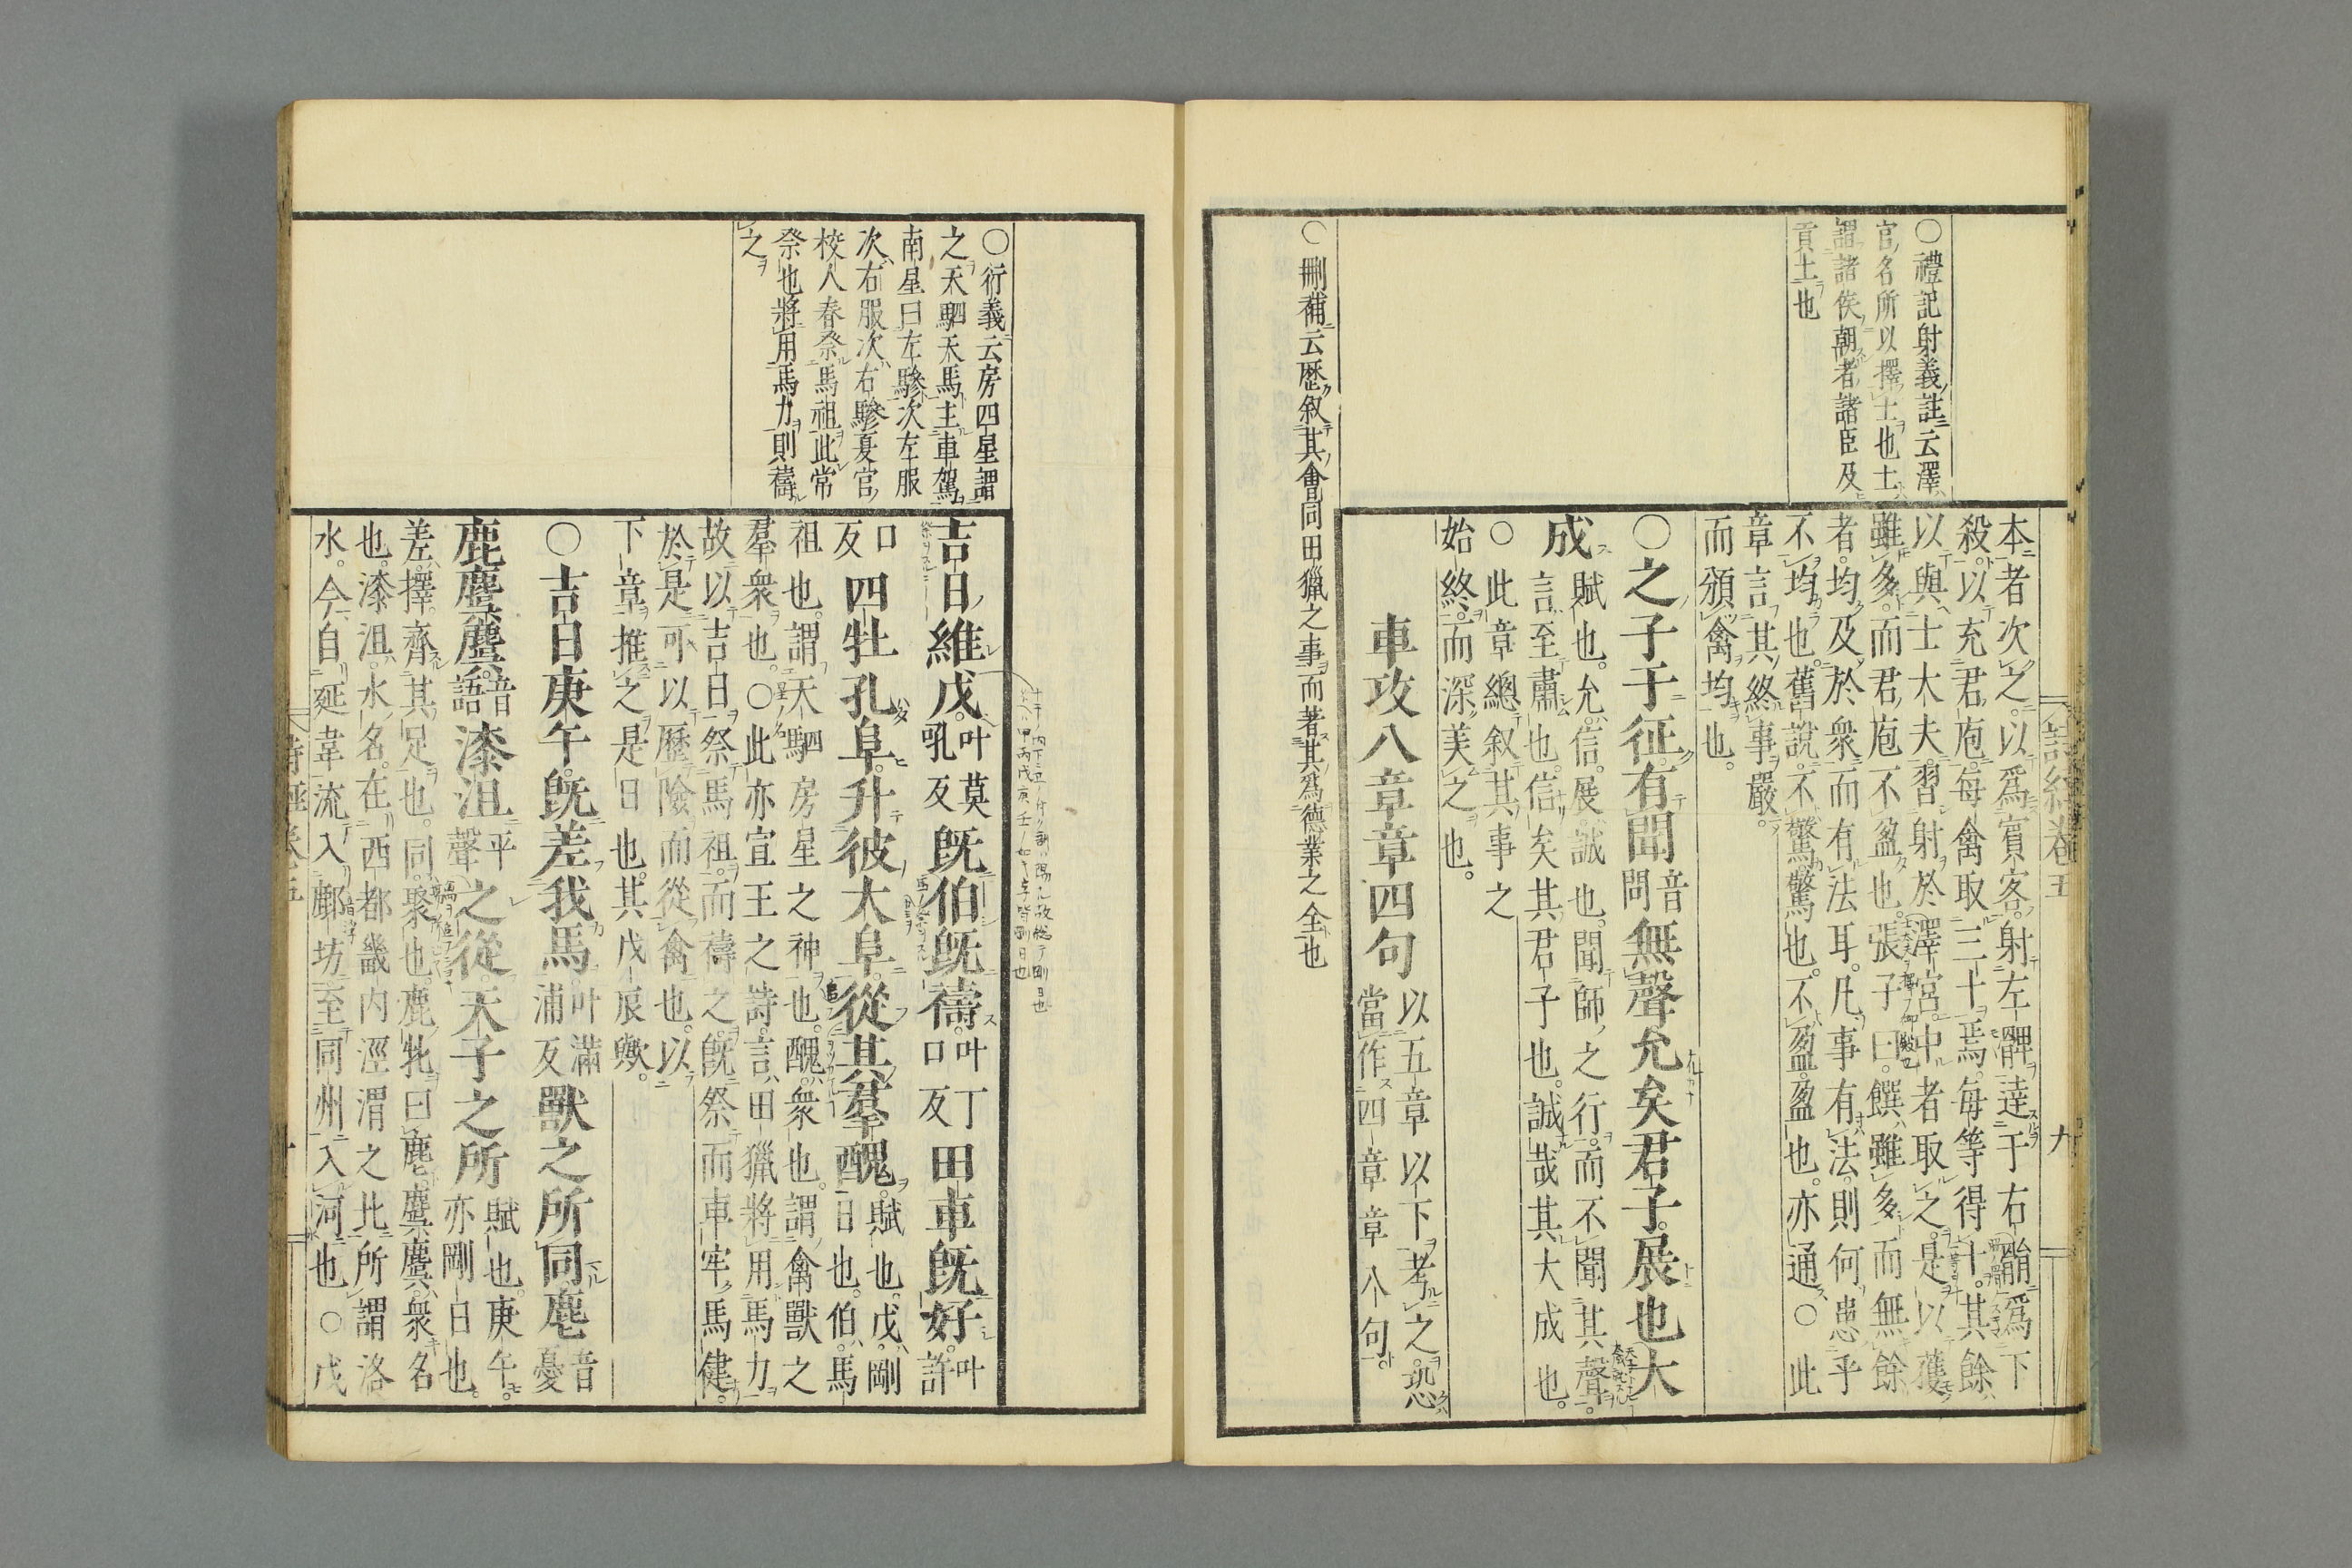 詩經卷五
九
○禮記射義註云澤
官名所以擇士也士
謂諸侯朝者諸臣及
貢士也
本者次之。以爲賓客。射左髀達于右䯚爲下
殺。以充君庖。每禽取三十焉。每等得十。其餘
以與士大夫。習射於澤宮。中者取之。是以獲
雖多。而君庖不盈也。張子曰。饌雖多而無餘
者。均及於衆而有法耳。凡事有法。則何患乎
不均也。舊說。不驚驚也。不盈。盈也。亦通。○此
章言其終事嚴。
而頒禽均也。
○之子于征。有聞音問無聲。允矣君子。展也大
成
賦也。允。信。展。誠也。聞師之行。而不聞其聲。
言至肅也。信矣其君子也。誠哉其大成也。
○此章總叙其事之
始終。而深美之也。
車攻八章章四句
以五章以下考之。恐
當作四章章八句。
○刪補云歷叙其會同田獵之事而著其爲德業之全也
○衍義云房四星謂
之天駟天馬主車駕
南星曰左驂次左服
次右服次右驂夏官
校人春祭馬祖此常
祭也將用馬力則禱
之
吉日維戊。叶莫吼反旣伯旣禱。叶丁口反田車旣好。叶許
口反四牡孔阜。升彼大阜。從其羣醜。賦也。戊。剛日也。伯。馬
祖也。謂天駟房星之神也。醜。衆也。謂禽獸之
羣衆也。○此亦宣王之詩。言田獵將用馬力
故以吉日祭馬祖。而禱之。旣祭而車牢馬健。
於是可以歷險而從禽也。以
下章推之。是日也。其戊辰歟。
○吉日庚午。旣差我馬。叶滿浦反獸之所同。麀音憂
鹿麌麌。音語漆沮平聲之從。天子之所賦也。庚午。亦剛日也。
差。擇。齊其足也。同。聚也。鹿牝曰麀。麌麌。衆多
也。漆沮。水名。在西都畿內涇渭之北。所謂洛
水。今自延韋流入鄜坊。至同州入河也。○戊
詩經卷五